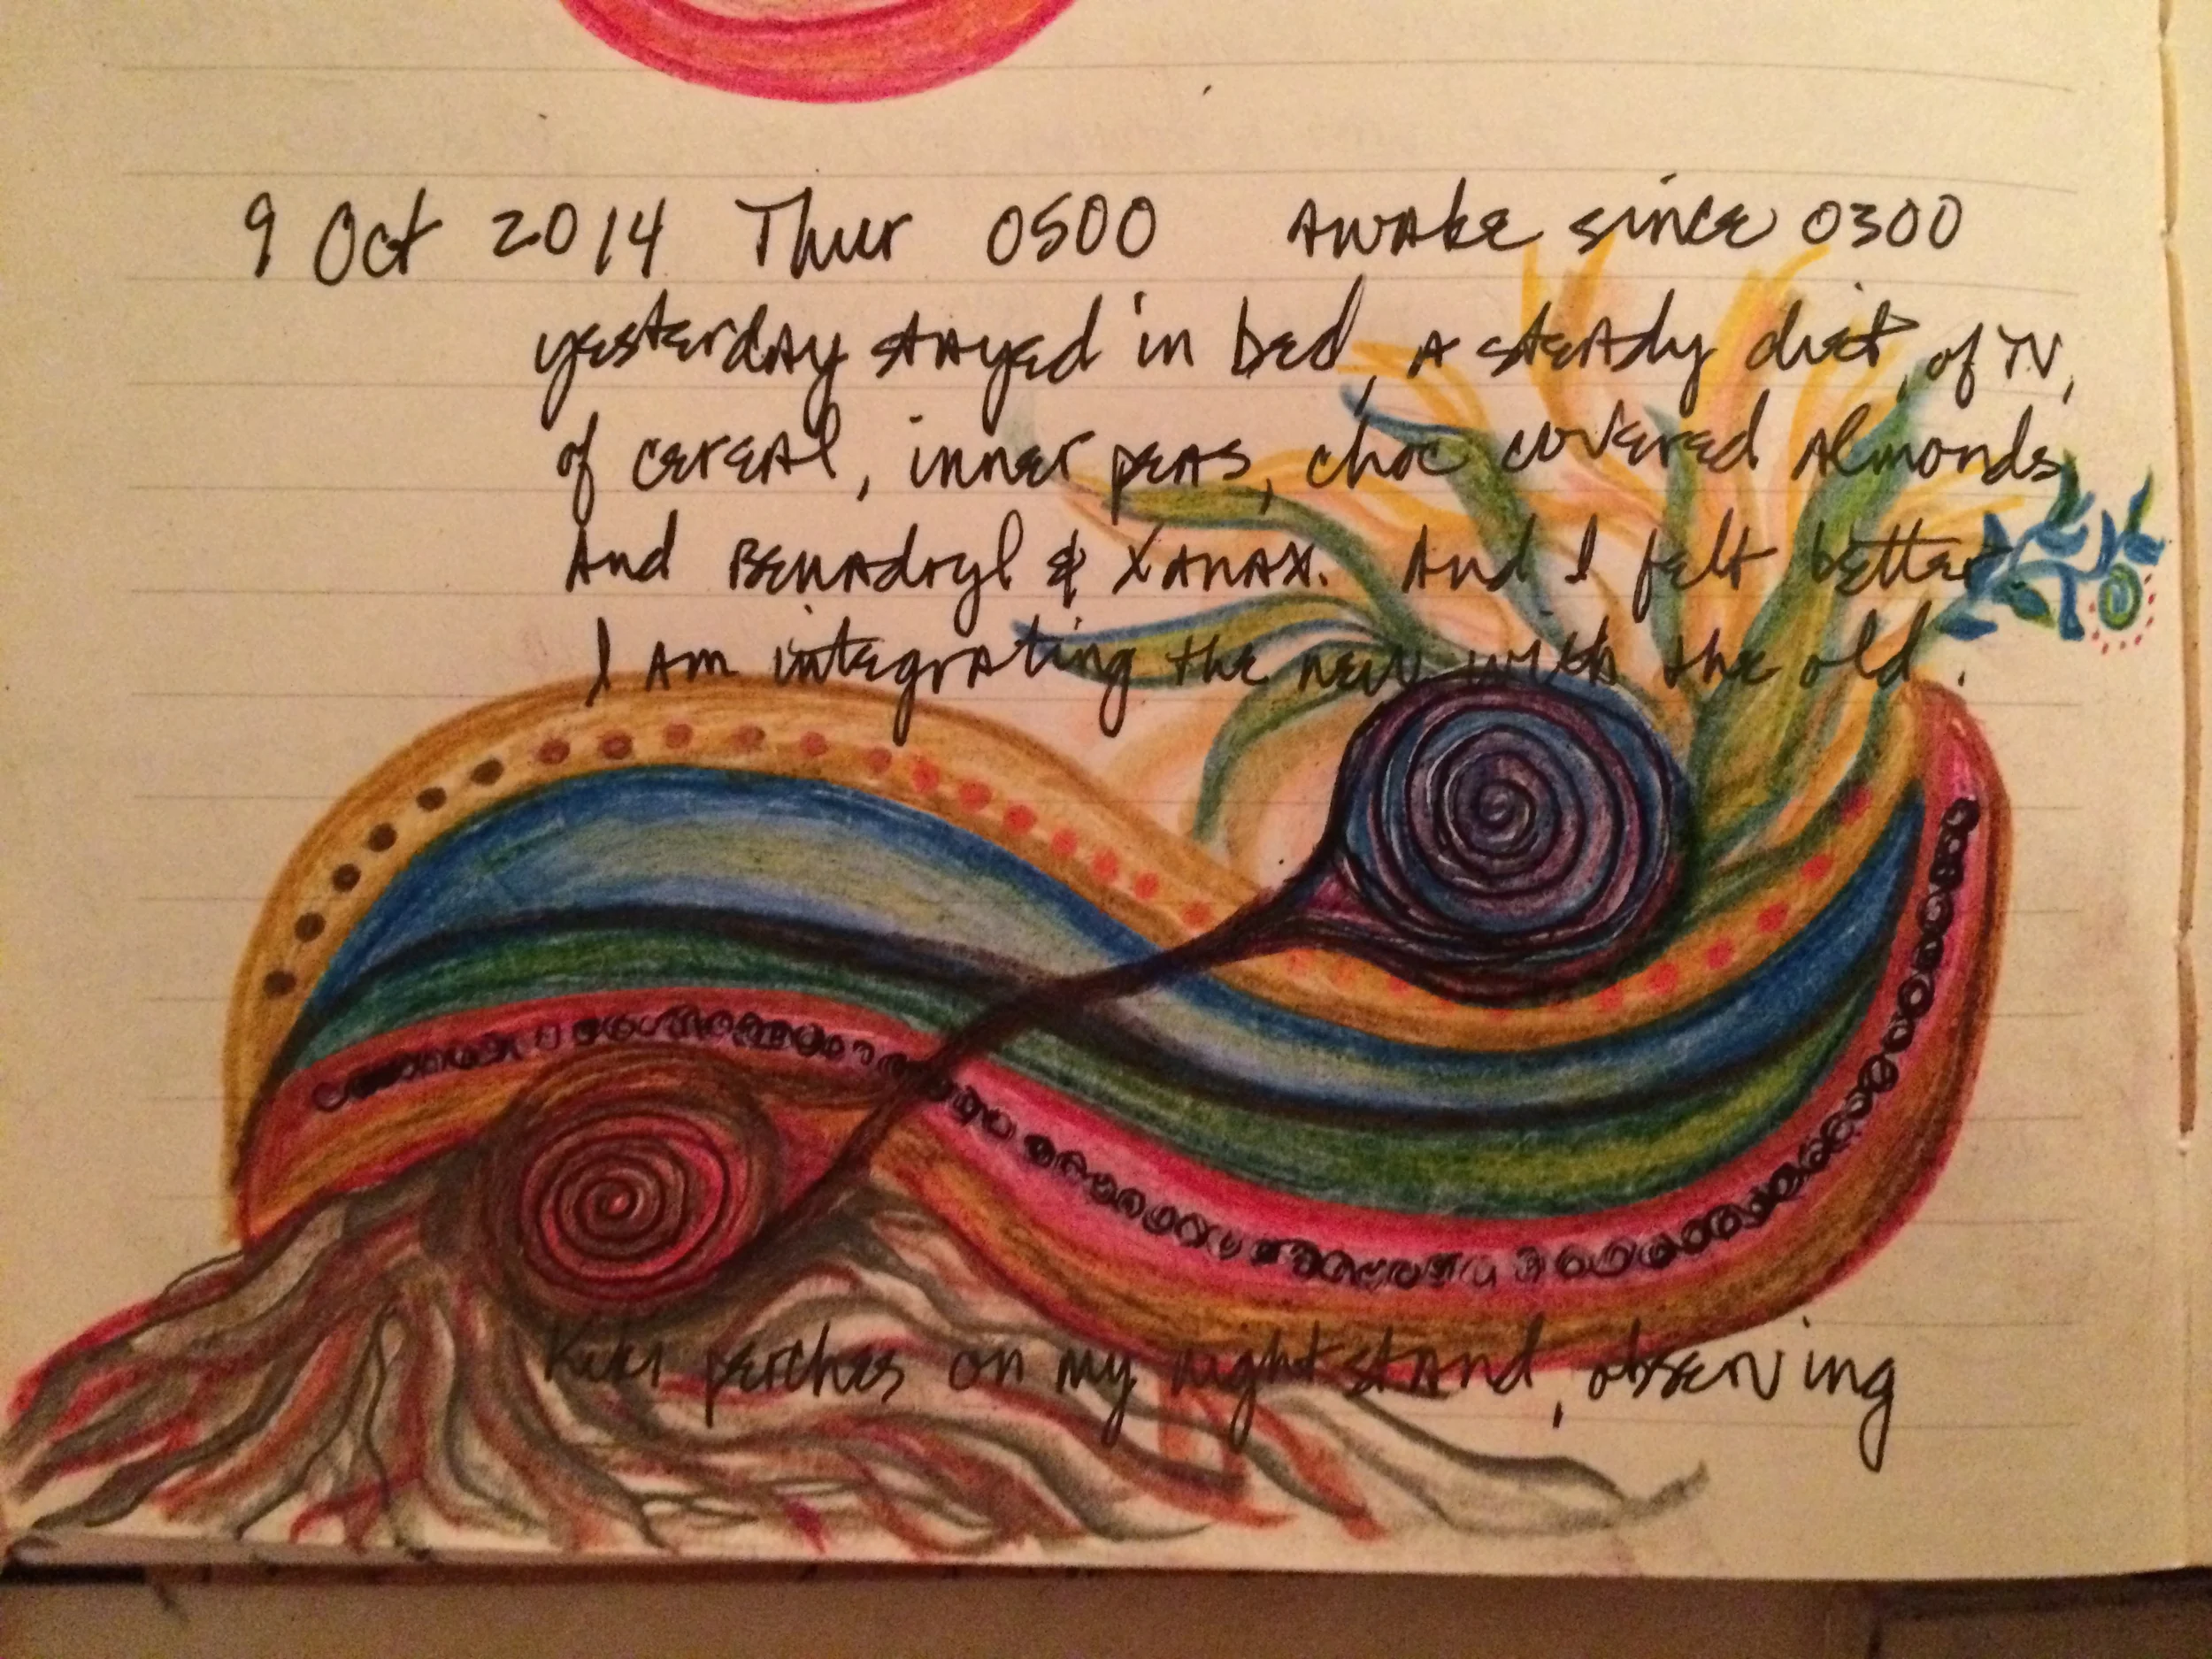 9 Oct 2014 Thur 0500 Awake since 0300
yesterday stayed in bed, a steady diet, of TV,
of cereal, inner peas, choc covered almonds
And Benadryl & Xanax. And I felt better
I am integrating the new with the old.
Kiki perches on my nightstand, observing